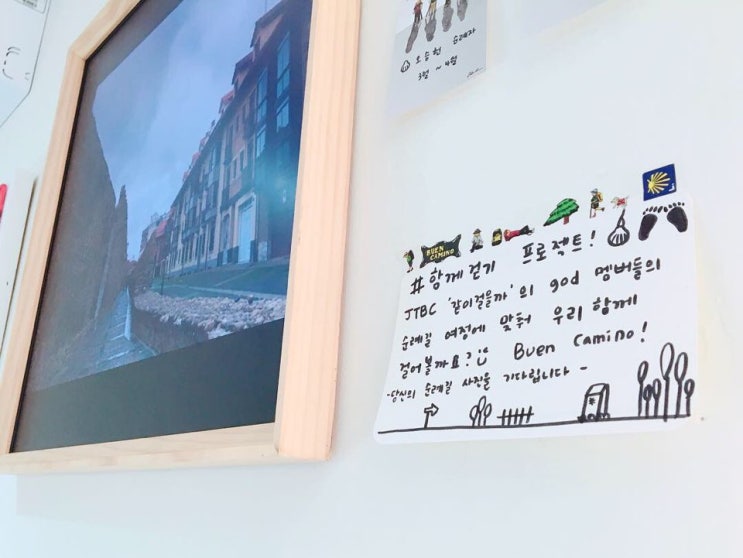 오승헌 순례자
3월 ~ 4월
BUEN
CAMINO
#함께걷기 프로젝트!
JTBC '같이걸을까'의 god 멤버들의
순례길 여정에 맞춰 우리 함께
걸어볼까요? Buen Camino!
-당신의 순례길 사진을 기다립니다-